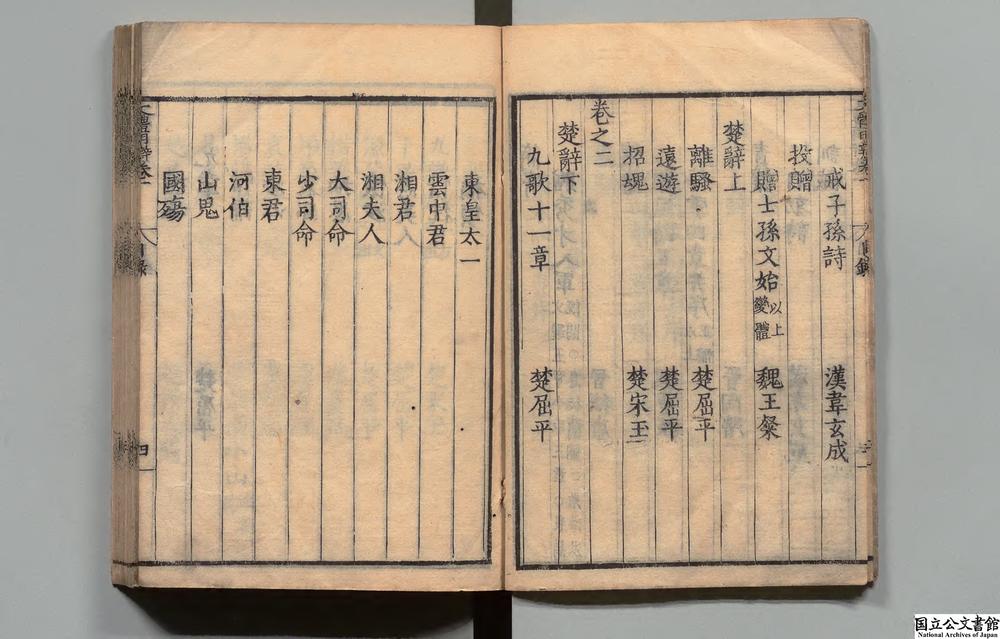 戒子孫詩 漢韋玄成
投贈
贈士孫文始 以上變體 魏王粲
楚辭上
離騷 楚屈平
遠遊 楚屈平
招䰟 楚宋玉
卷之二
楚辭下
九歌十一章 楚屈平
東皇太一
雲中君
湘君
湘夫人
大司命
少司命
東君
河伯
山鬼
國殤
目錄
四
国立公文書館
National Archives of Japan